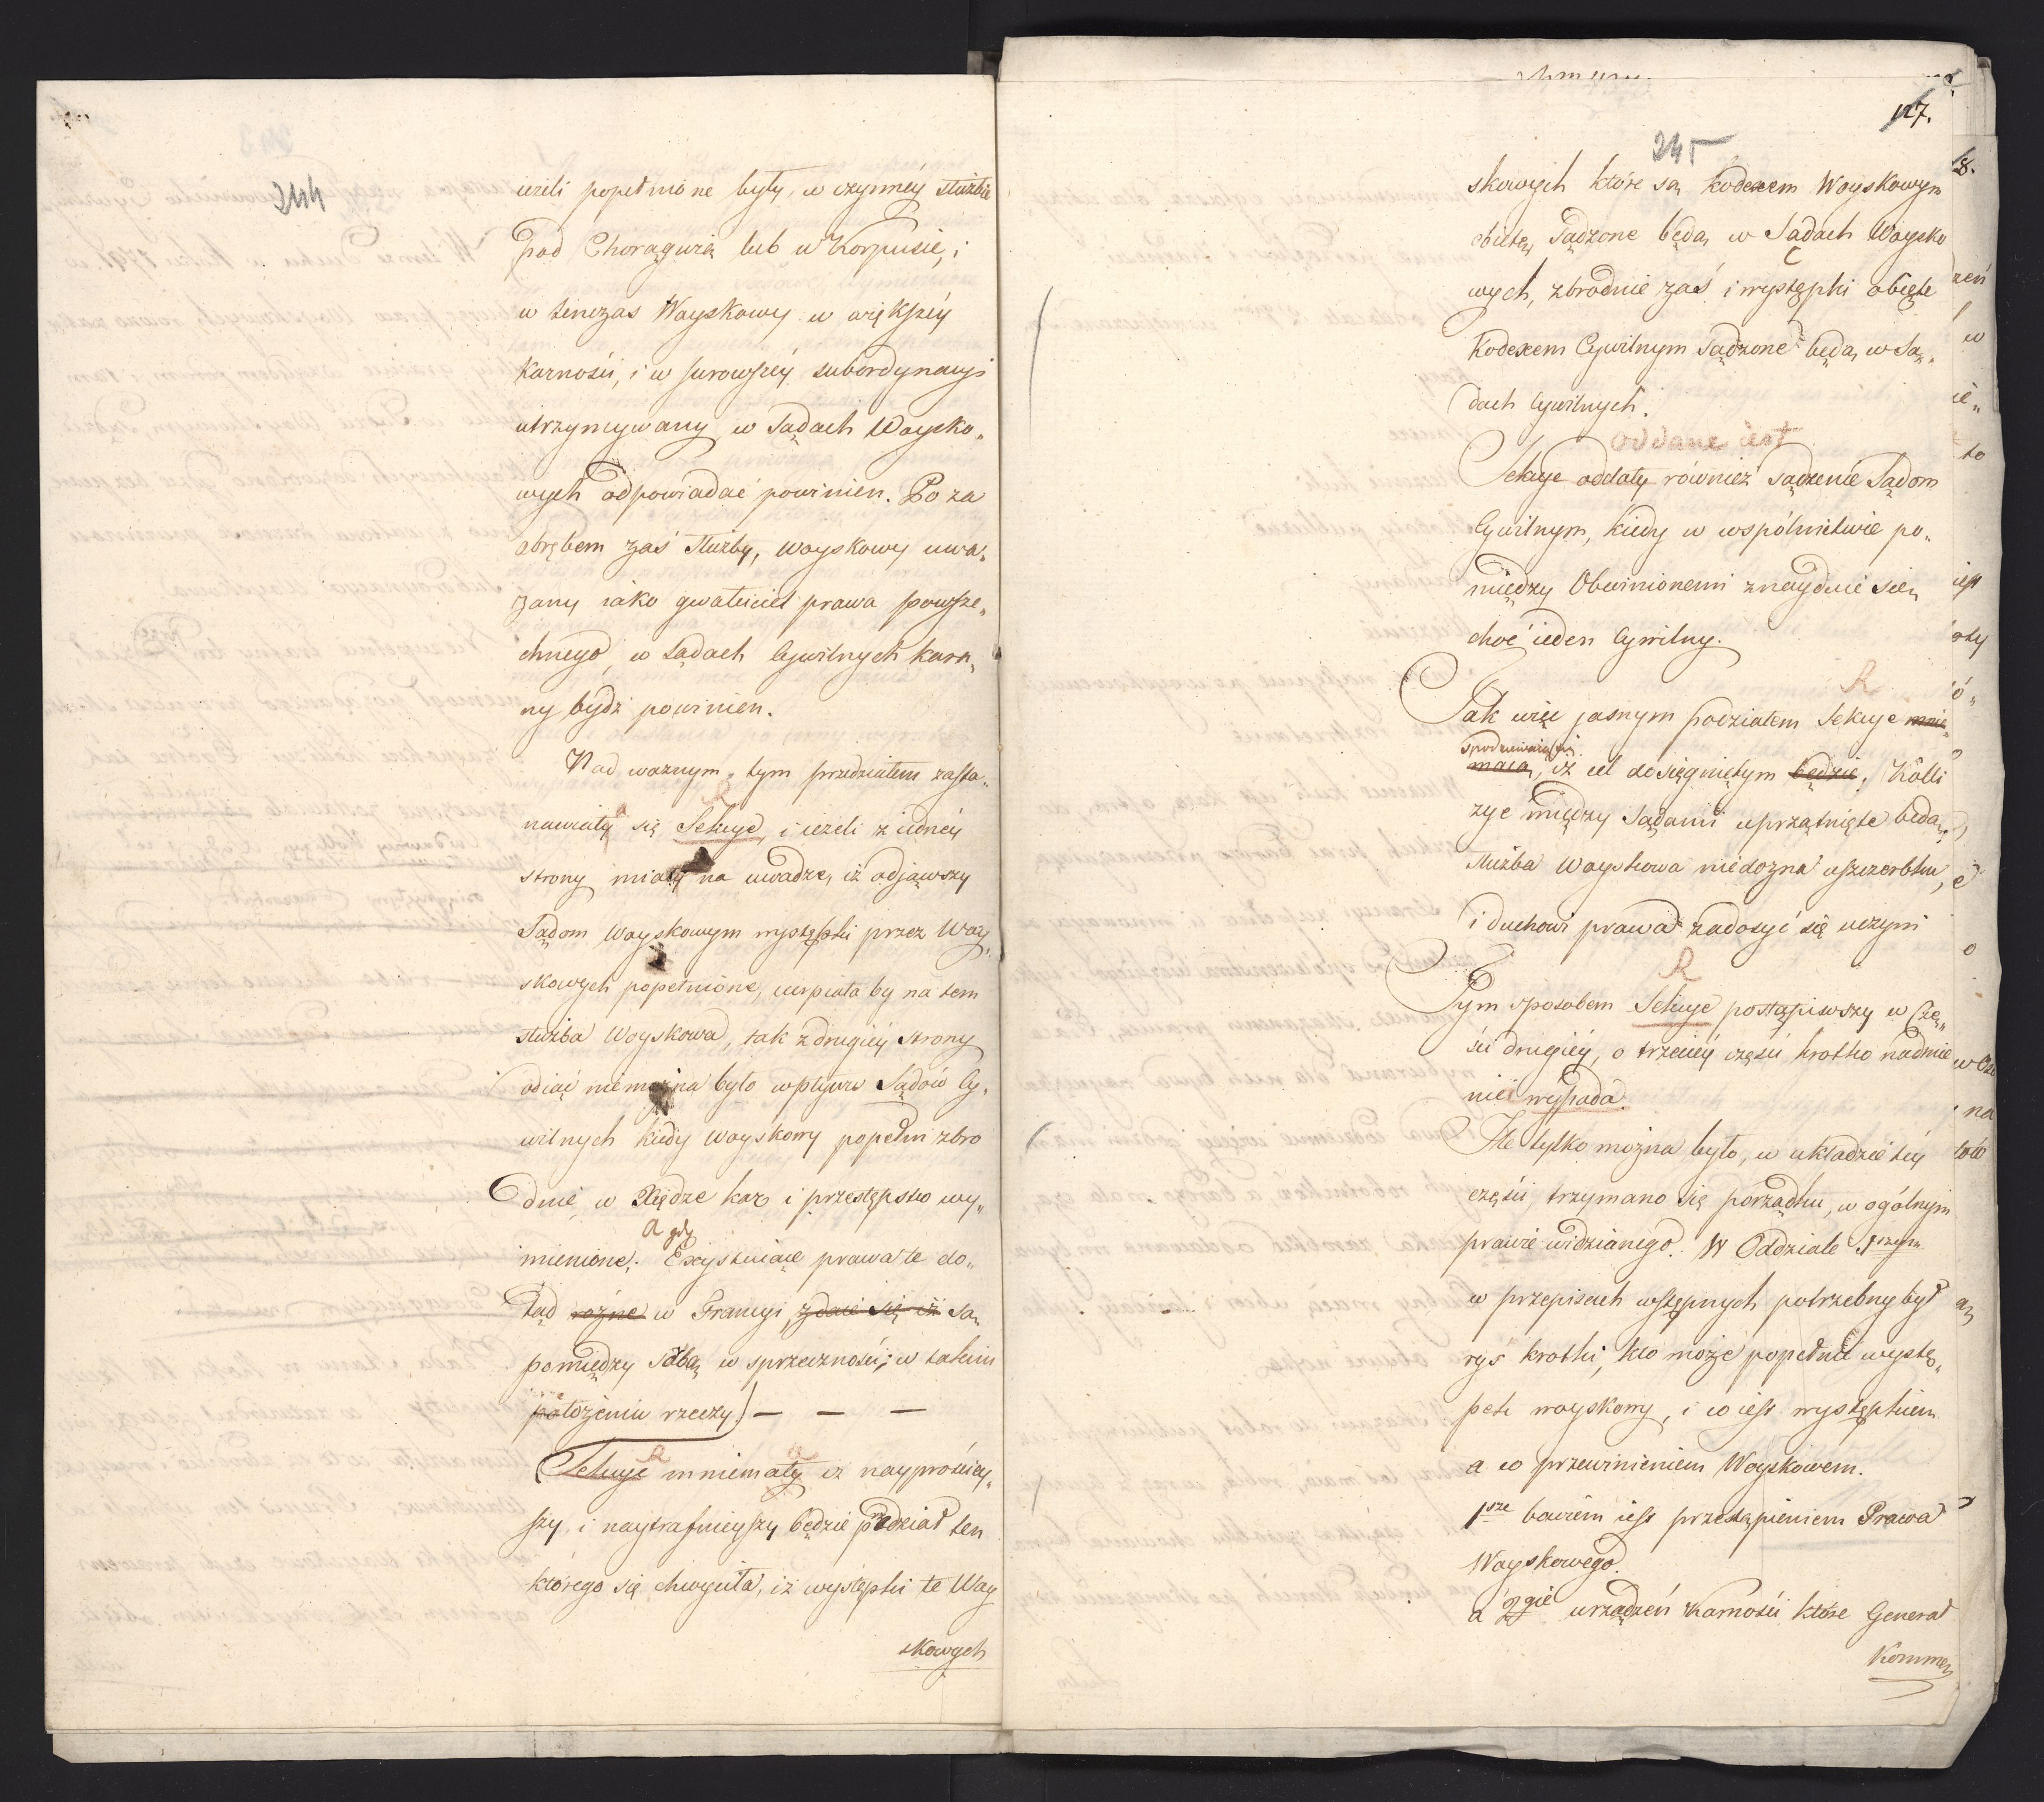 244
ieżeli popełnione były, w czynnéy służbie
pod Chorągwią lub w Korpusie, i
w tenczas Woyskowy w więkſzéy
Karności, i w ſurowſzéy subordynacyi
utrzymywany w Sądach Woysko„
wych odpowiadać powinien. Po za
obrębem zaś służby, woyskowy uwa„
żany iako gwałciciel prawa powſze„
chnego, w Sądach Cywilnych kara„
ny bydź powinien.
Nad ważnym tym przedziałem zaſta„
nawiały się Sekcye, i ieżeli z iednéy
strony miały na uwadze, iż odjąwszy
Sądom Woyskowym występki przez Woy„
skowych popełnione, cierpiała by na tem
służba Woyskowa, tak z drugiéy strony
odiąć niemożna było wpływu Sądów Cy„
wilnych kiedy woyskowy popełni zbro
dnie, w Xiędze kar i przestępstw wy„
a gdy
mienione. Exystuiące prawa te do„
tąd rożne w Francyi, zdaie się iż są
pomiędzy sobą w sprzeczności; w takim
położeniu rzeczy) — — —
Sekcye mniemały iż nayprościey„
ſzy i naytrafnieyſzy będzie przedział ten
którego się chwyciła, iż występki te Woy
skowych
127.
245
skowych które są kodexem Woyskowym
obięte, Sądzone będą w Sądach Woysko
wych, zbrodnie zaś i występki obięte
Kodexem Cywilnym Sądzone będą w Są„
dach Cywilnych.
oddane iest
Sekcye oddały również sądzenie Sądom
Cywilnym, kiedy w wspólnictwie po„
między Obwinionemi znayduie się
choć ieden Cywilny.
R
Tak więc jasnym podziałem Sekcye mnie„
spodziewaią się
maią, iż cel dosięgniętym będzie. Kolli
zye między Sądami uprzątnięte będą,
służba Woyskowa niedozna uſzczerbku,
i duchowi prawa zadosyć się uczyni
R
Tym sposobem Sekcye postąpiwszy w Czę„
ści drugiéy, o trzeciéy części krotko nadmie
nić wypada.
Ile tylko można było, w układzie téy
części, trzymano się porządku, w ogólnym
prawie widzianego. W Oddziale 1szym
w przepisach wstępnych potrzebny był
rys krotki, kto może popełnić wystę„
pek woyskowy, i co ieſt występkiem
a co przewinieniem Woyskowem.
1sze bowiem ieſt przestąpieniem Prawa
Woyskowego.
a 2gie urządzeń Karności które Generał
Kommen